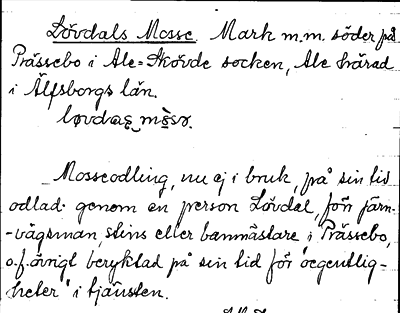 Lövdals Mosse. Mark m.m. söder på
Prässebo i Ale-Skövde socken, Ale härad
i Älfsborgs län.
Mosseodling, nu ej i bruk, på sin tid
odlad genom en person Lövdal, förr järn-
-vägsman, stins eller banmästare i Prässebo,
o.f. övrigt beryktad på sin tid för "oegentlig-
heter" i tjänsten.